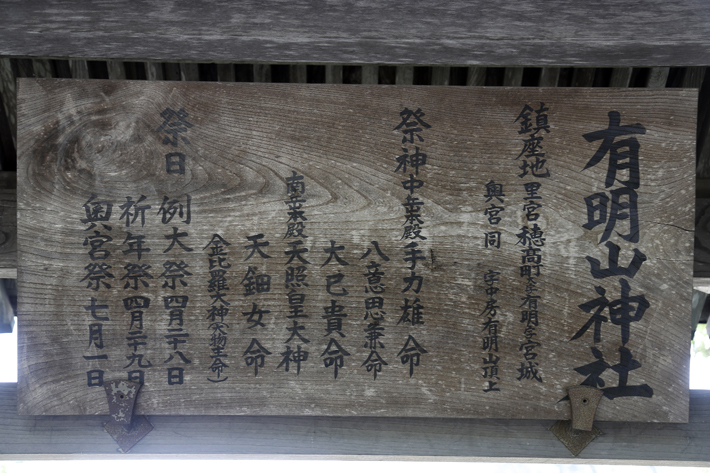 有明山神社
鎮座地 里宮 穂高町大字有明字宮城
奥宮 同 字中房有明山頂上
祭神 中岳本殿 手力雄命
八意思兼命
大己貴命
南岳本殿 天照皇大神
天鈿女命
金比羅大神(大物主命)
祭日 例大祭 四月二十八日
祈年祭 四月二十九日
奥宮祭 七月一日